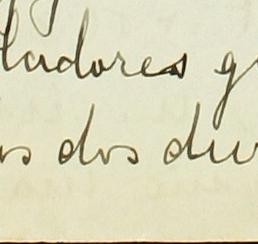 ladores g
os dos du